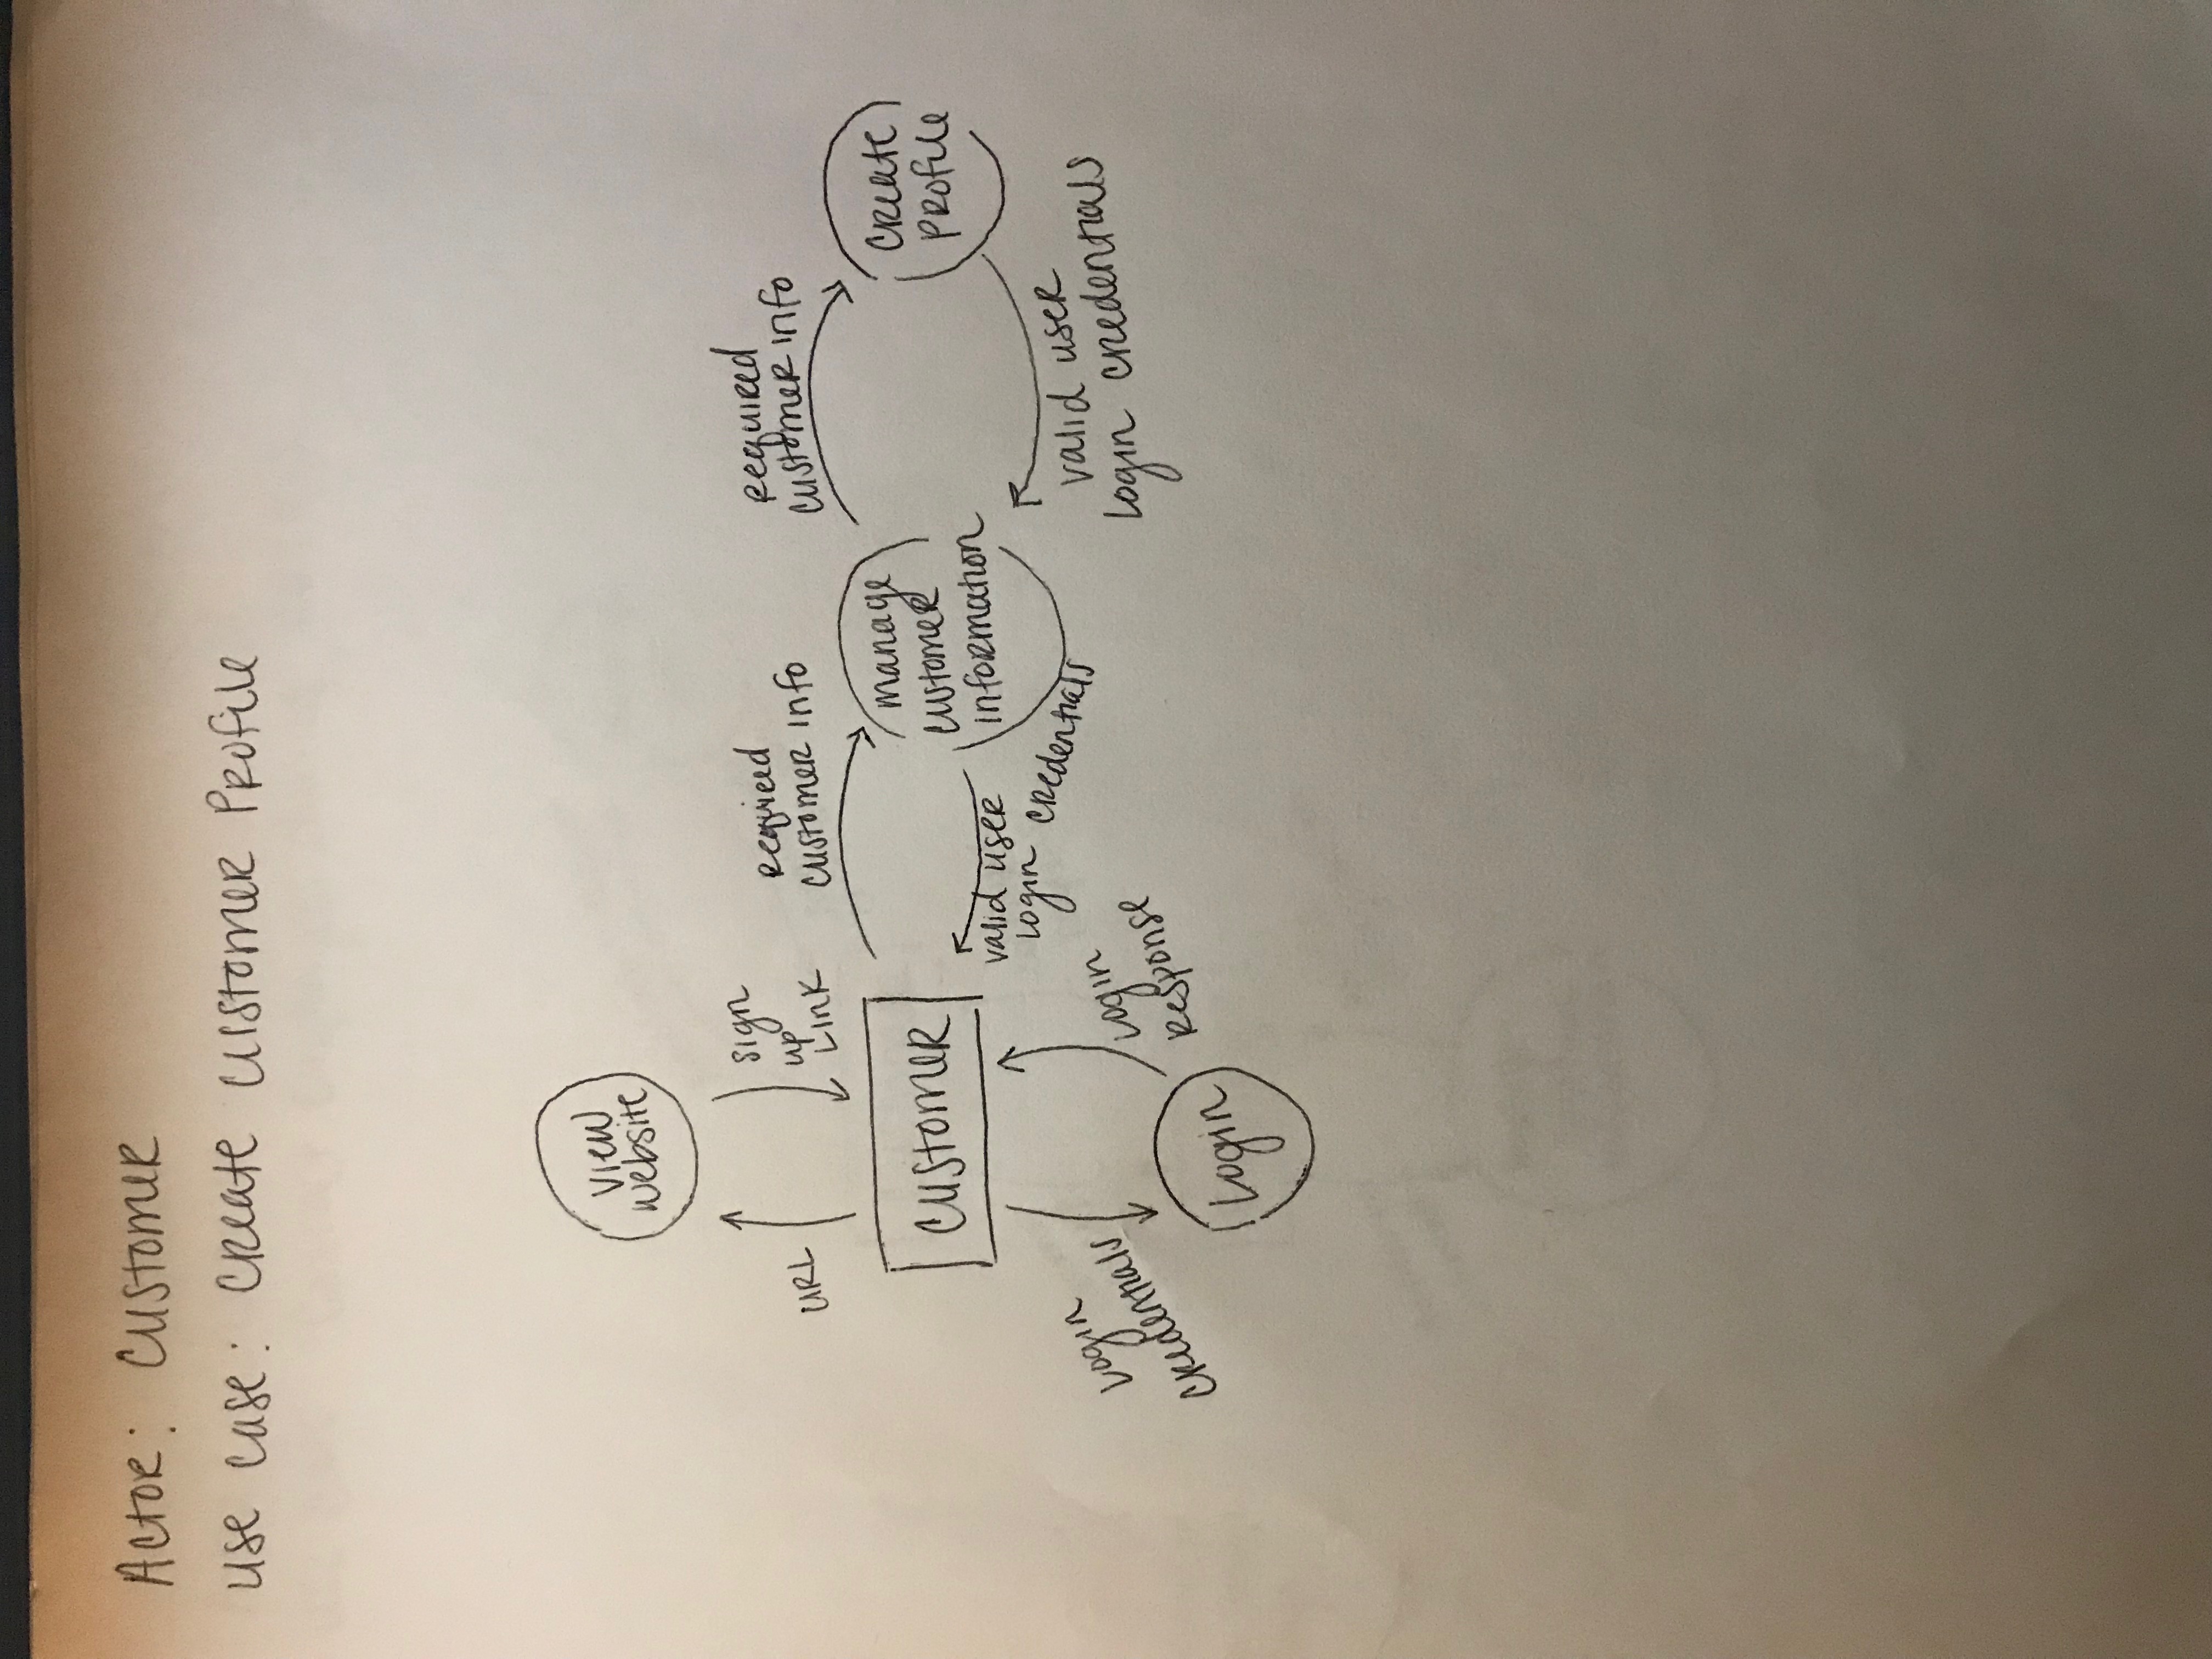 Actor: Customer
Use case: Create Customer Profile
View
Website
URL
sign
up
Link
Required
Customer info
Required
Customer info
Customer
manage
Customer
information
Create
Profile
valid user
login credentials
valid user
login credentials
Login
credentials
Login
Response
Login